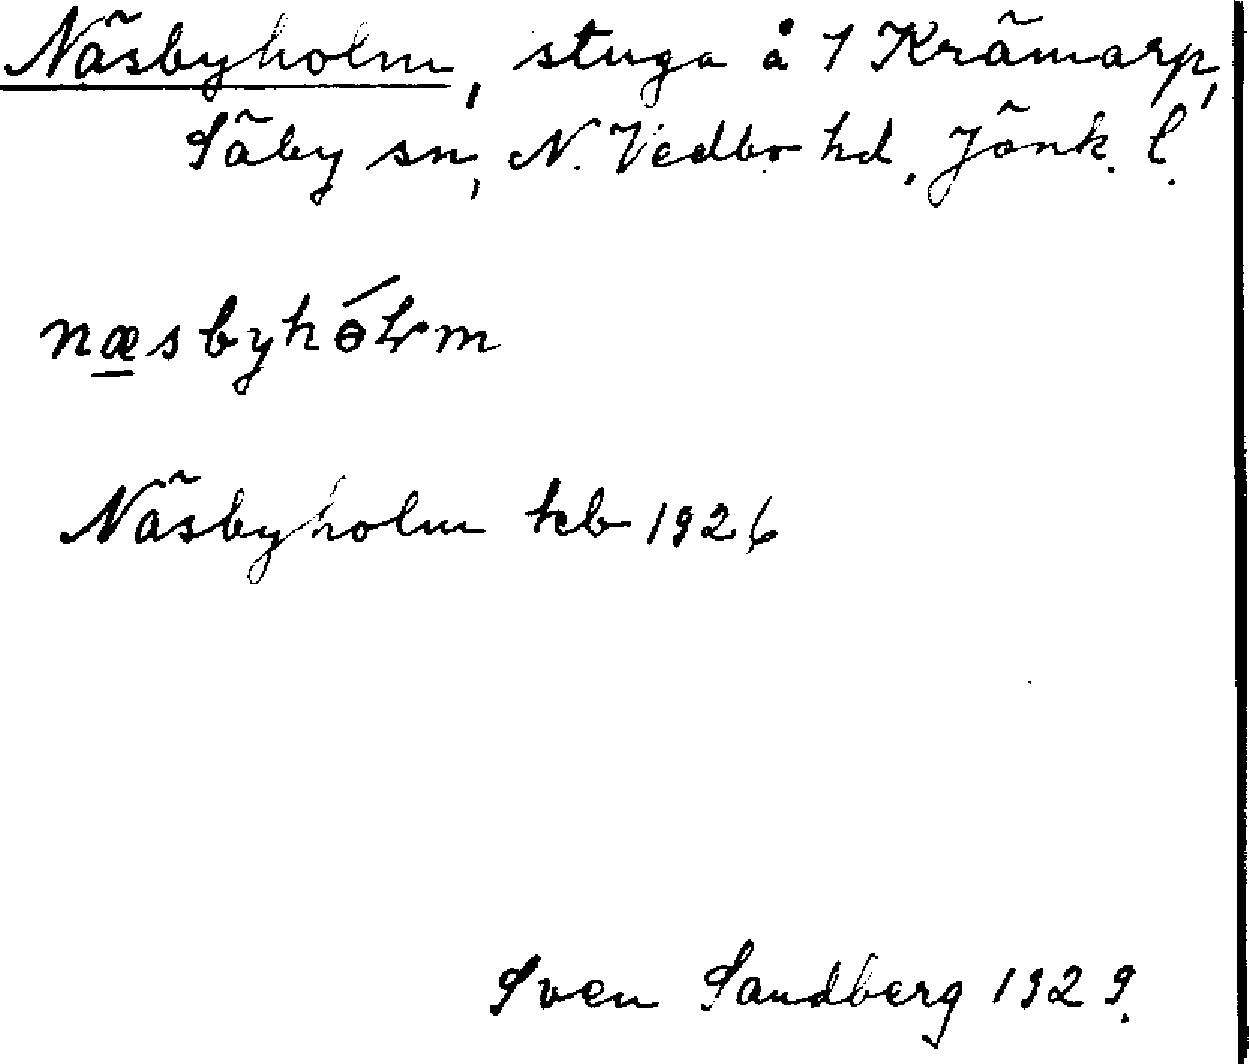 Näsbyholm, stuga å 1 Krämarp,
Säby sn, N. Vedbo hd. Jönk. l.
næsbyhɵ́ɫm
Näsbyholm kb 1926
Sven Sandberg 1929.